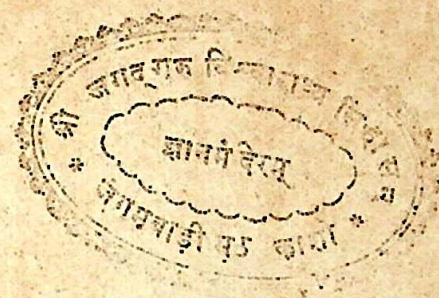 श्री जगद्गुरु विश्वाराध्य
ज्ञानमंदिरम्
जंगमवाड़ी मठ